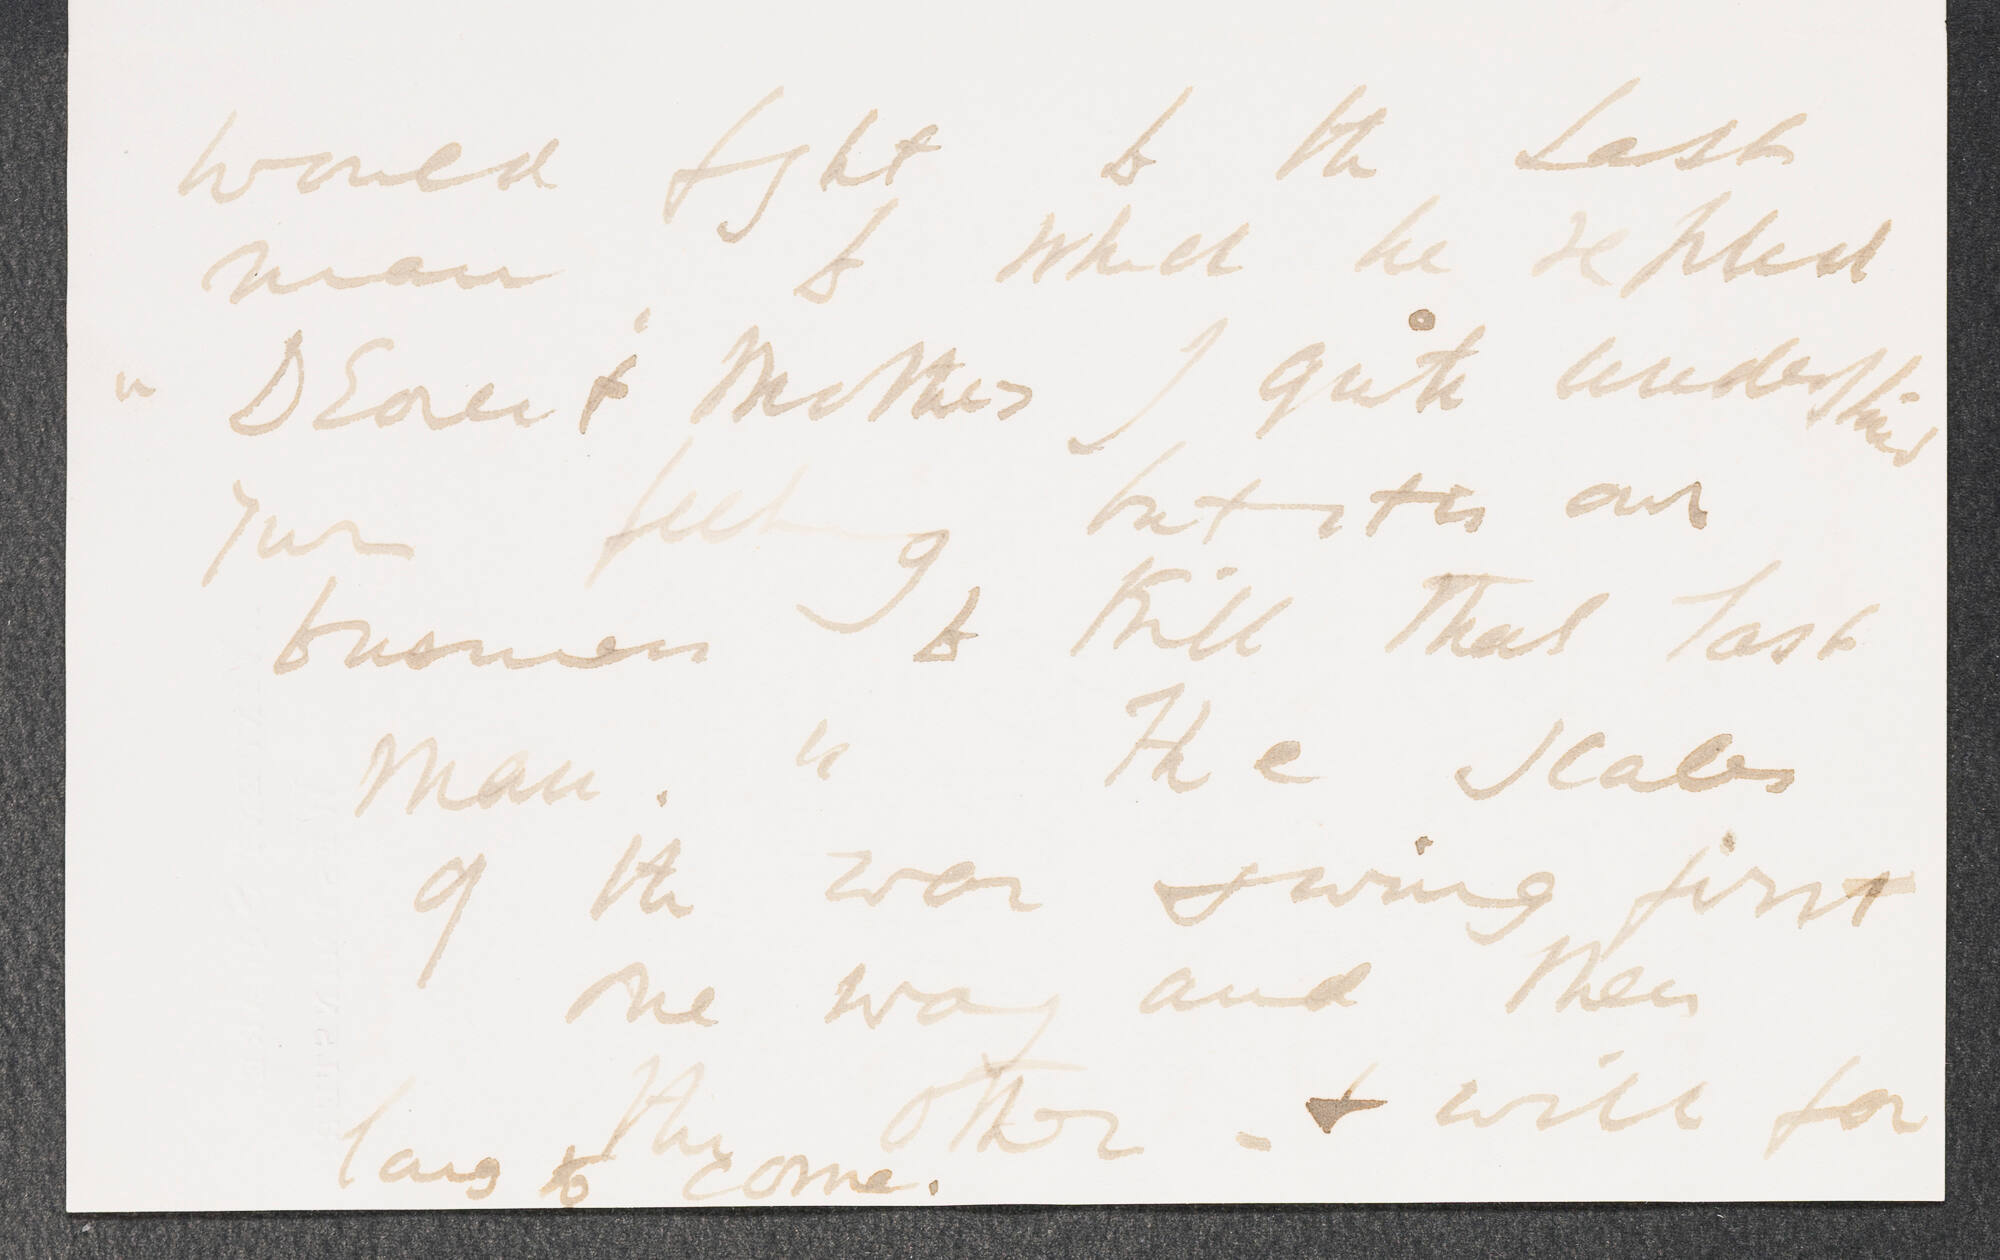 would fight to the last
man, to which he replied
"Dearest Mother I quite understand
your feeling but it is our
business to kill that last
man." The scales
of the war swing first
one way and then
the other - & will for
long to come.